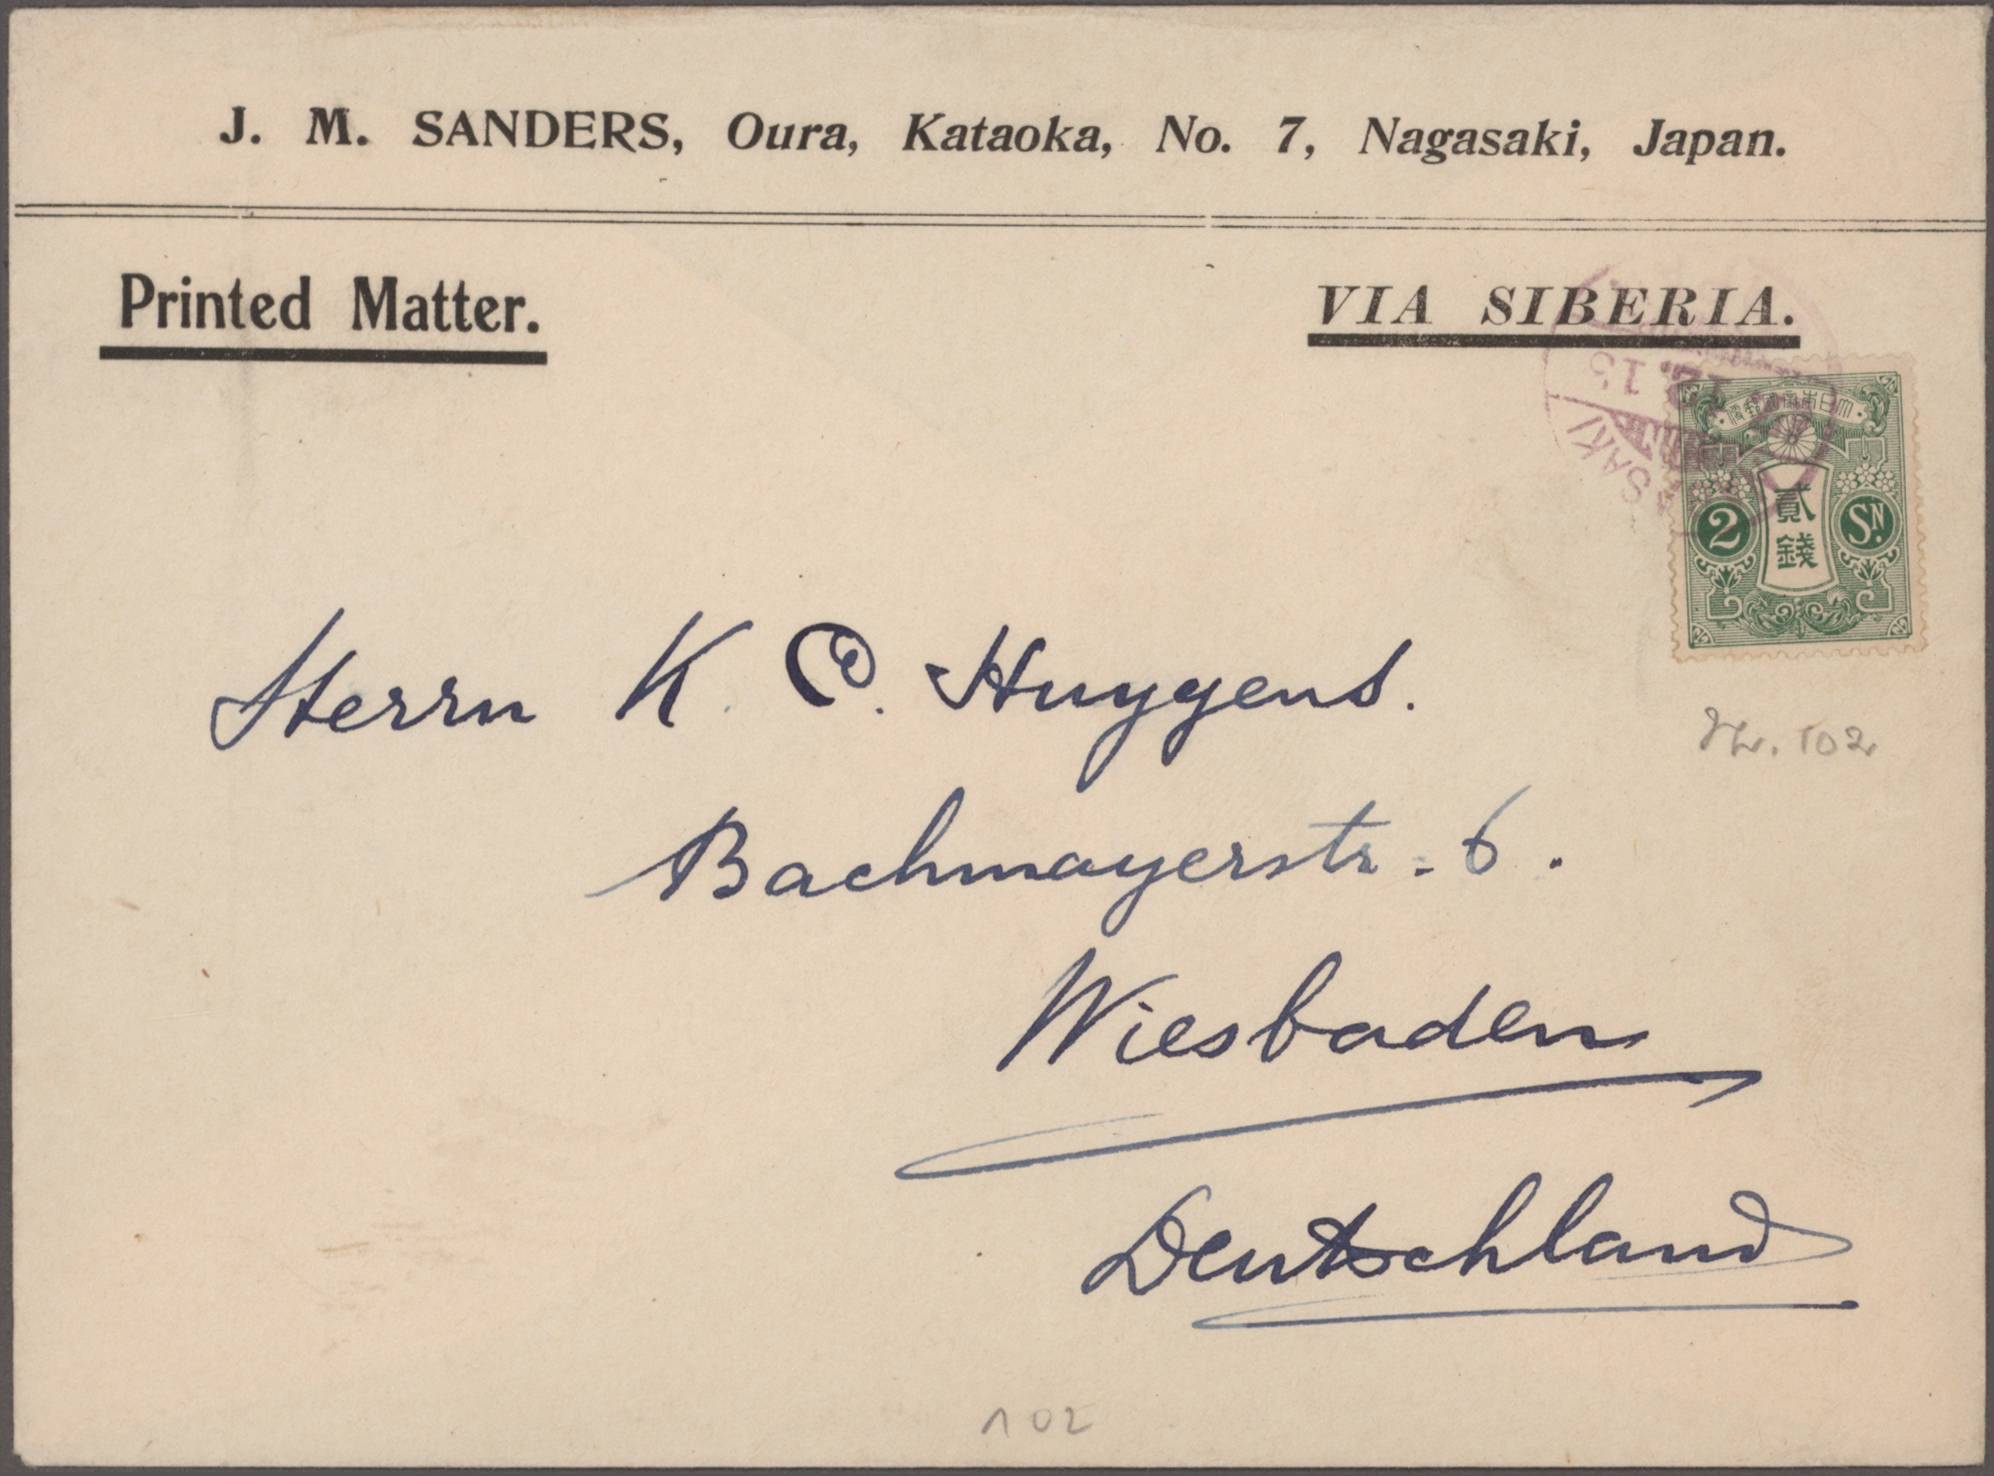 J. M. SANDERS, Oura, Kataoka, No. 7, Nagasaki, Japan.
Printed Matter.
VIA SIBERIA.
大日本帝國郵便
貳錢
2
Sn.
Herrn K. C. Huygens.
Nr. 102
Bachmayerstr. 6.
Wiesbaden
Deutschland
102